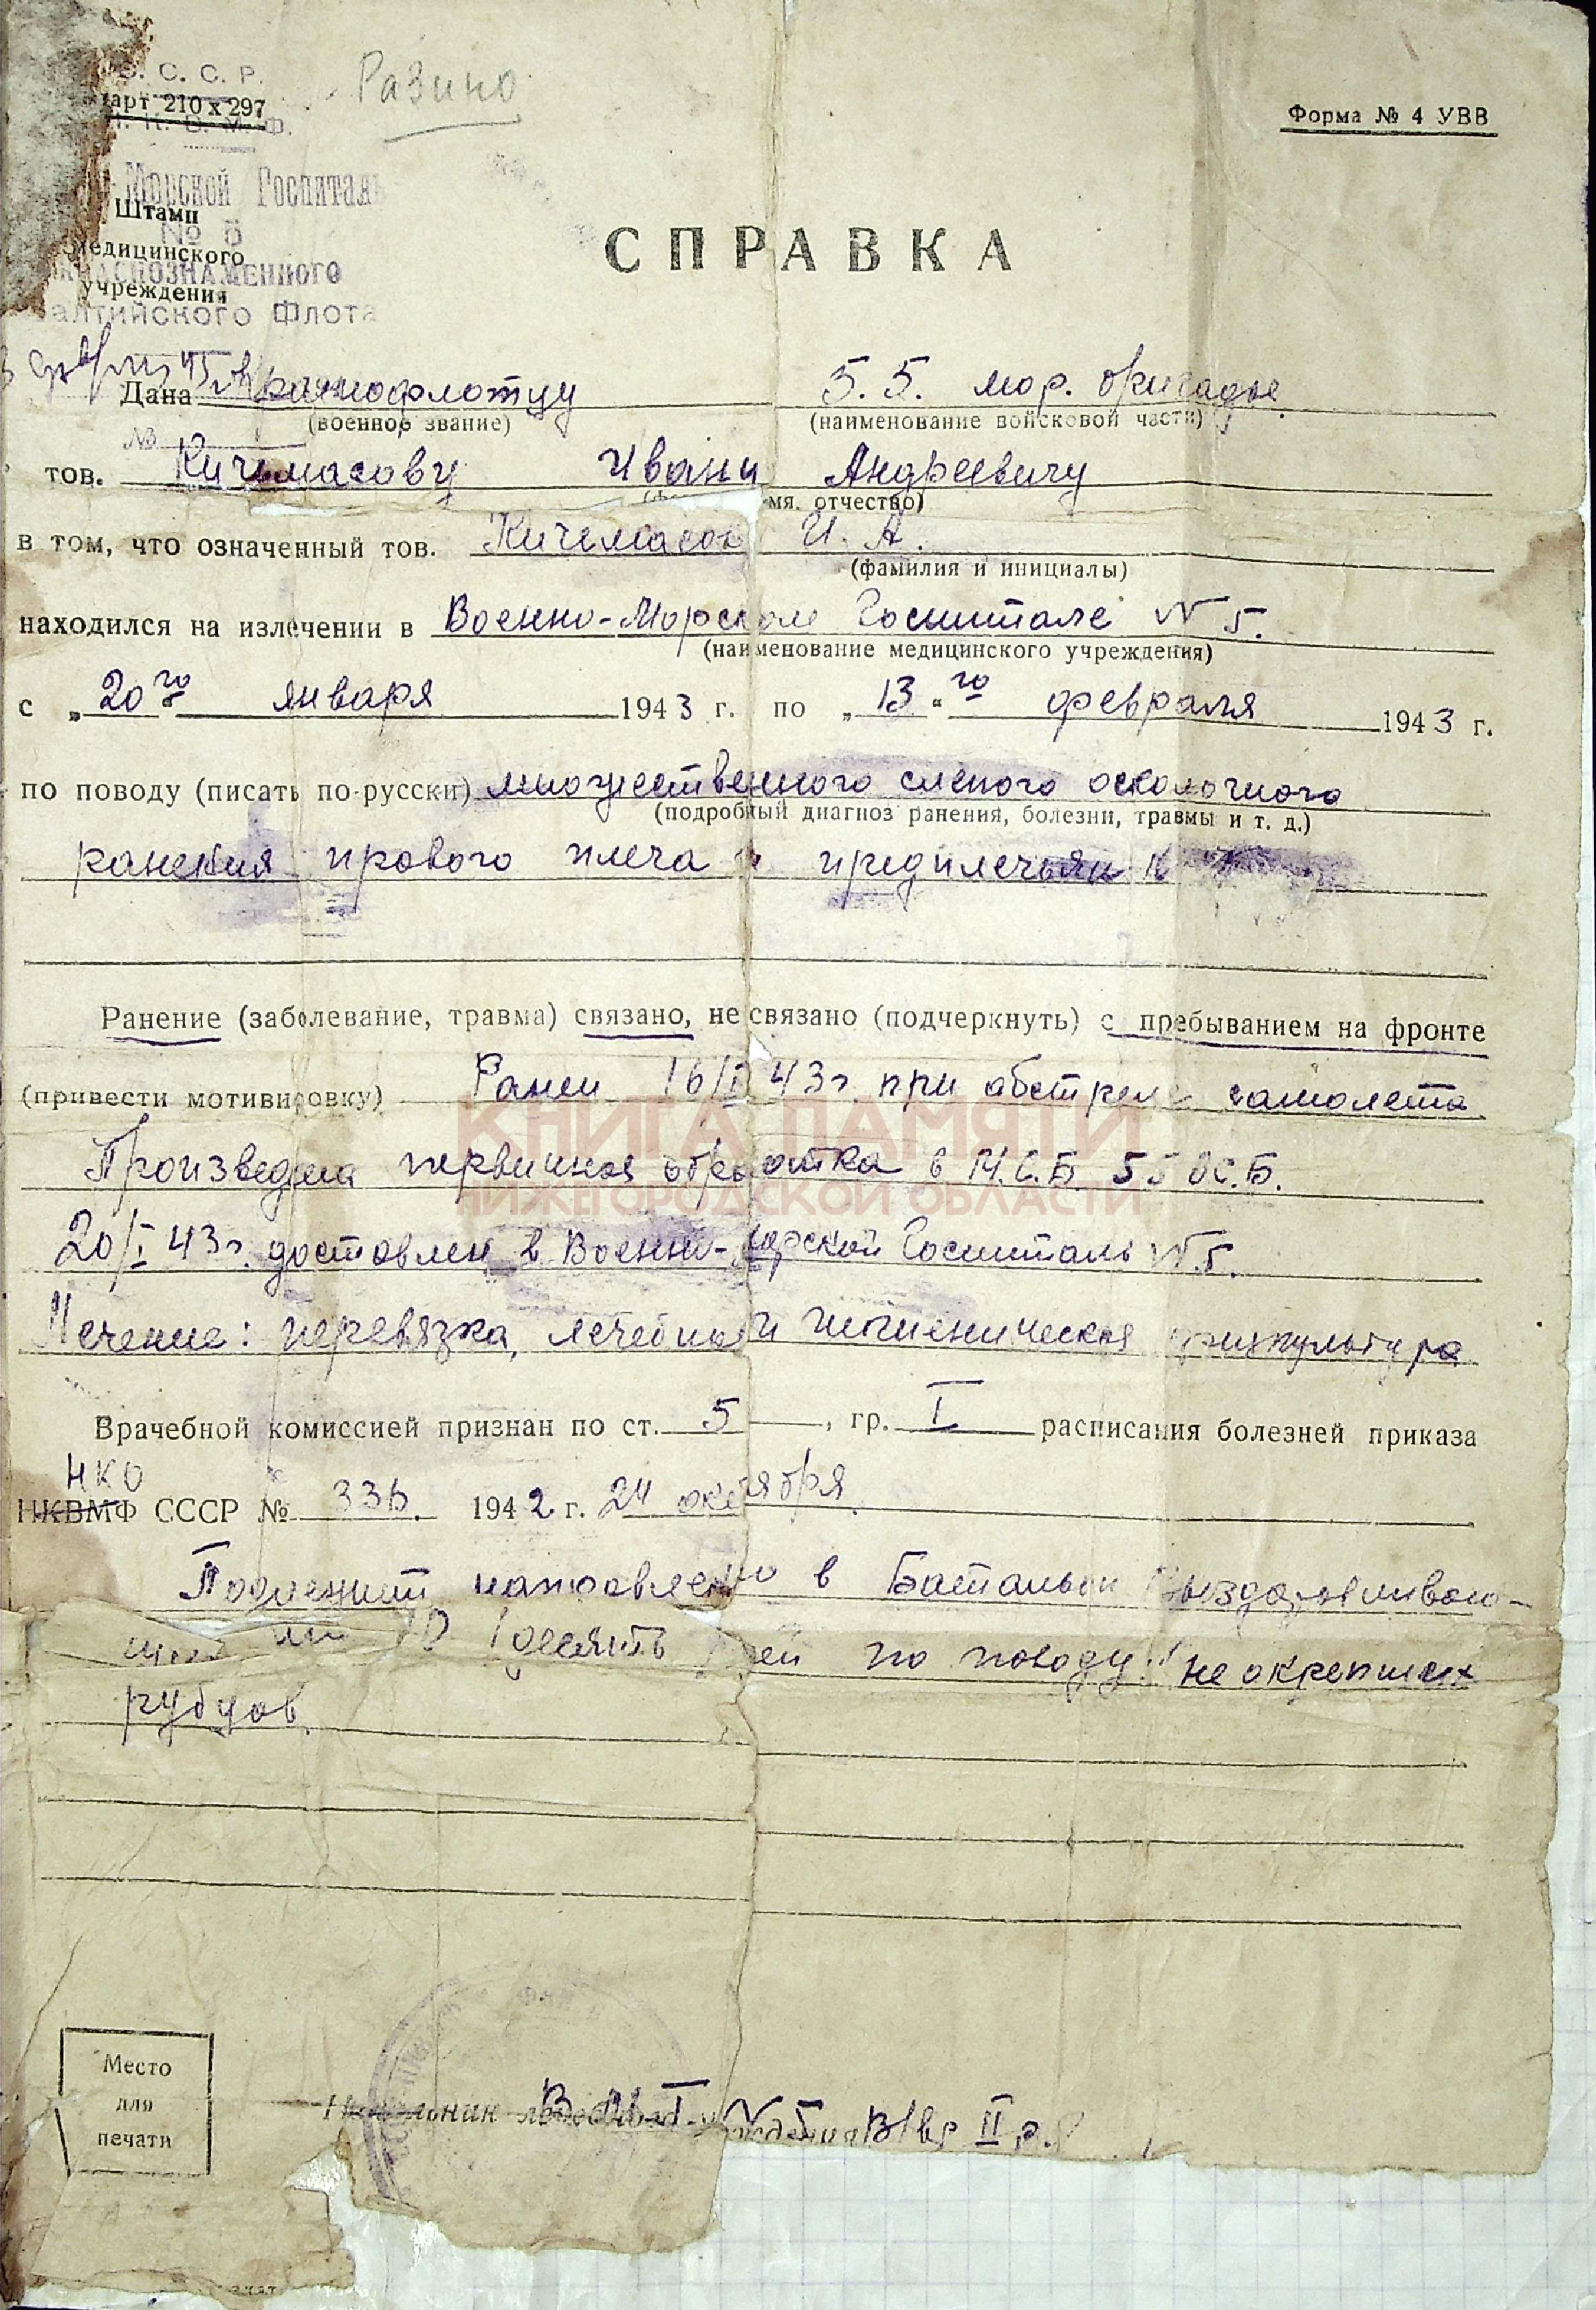 С. С. С. Р.
арт 210 х 297
Разино
Форма № 4 УВВ
Морской Госпиталь
Штамп
№ 5
медицинского
КРАСНОЗНАМЕННОГО
учреждения
алтийского Флота
СПРАВКА
Дана Краснофлотцу 55. мор. бригады
(военное звание) (наименование войсковой части)
№
тов. Кичемасову Ивану Андреевичу
мя, отчество)
в том, что означенный тов. Кичемасов И. А.
(фамилия и инициалы)
находился на излечении в Военно-Морском Госпитале № 5.
(наименование медицинского учреждения)
с „20го января 1943 г. по „13"го февраля 1943 г.
по поводу (писать по-русски) множественного слепого осколочного
(подробный диагноз ранения, болезни, травмы и т. д.)
ранения правого плеча и предплечья
Ранение (заболевание, травма) связано, не связано (подчеркнуть) с пребыванием на фронте
(привести мотивировку) Ранен 16/I 43г. при обстреле самолета
КНИГА ПАМЯТИ
Произведена первичная обработка в М.С.Б. 55 ОС.Б.
НИЖЕГОРОДСКОЙ ОБЛАСТИ
20/I 43г. доставлен в Военно-морской Госпиталь № 5.
Лечение: перевязка, лечебная и гигиеническая физкультура
Врачебной комиссией признан по ст. 5, гр. I расписания болезней приказа
НКО
НКВМФ СССР № 336. 1942 г. 24 октября.
Подлежит направлению в Батальон Выздоравливаю-
на 10 (десять дней по поводу не окрепших
рубцов.
Место
для
печати
Начальник
II р.